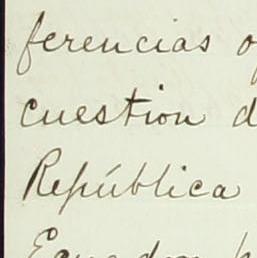 ferencias
cuestion d
República